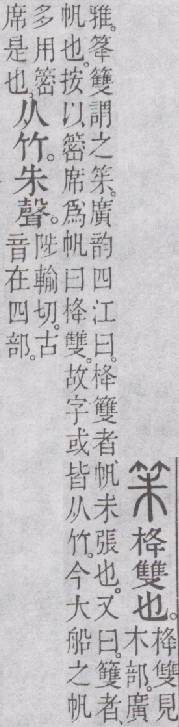 䇬栙雙也。
栙雙見
木部。廣
雅。雙謂之䇬。廣韵四江曰。栙䉶者帆未張也。又曰。䉶者
帆也。按以席爲帆曰栙雙。故字或皆从竹。今大船之帆
多用
席是也。
从竹。朱聲。
陟輸切。古
音在四部。